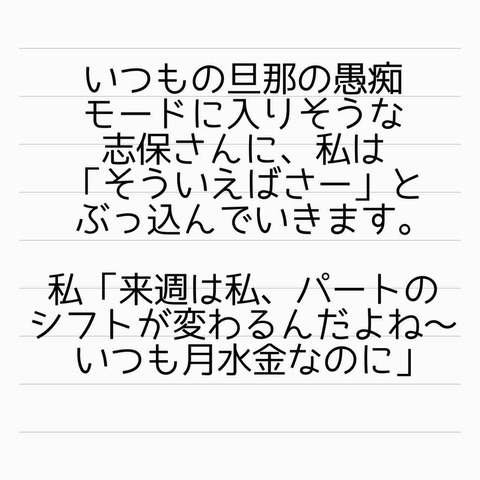 いつもの旦那の愚痴
モードに入りそうな
志保さんに、私は
「そういえばさー」と
ぶっ込んでいきます。
私「来週は私、パートの
シフトが変わるんだよね〜
いつも月水金なのに」